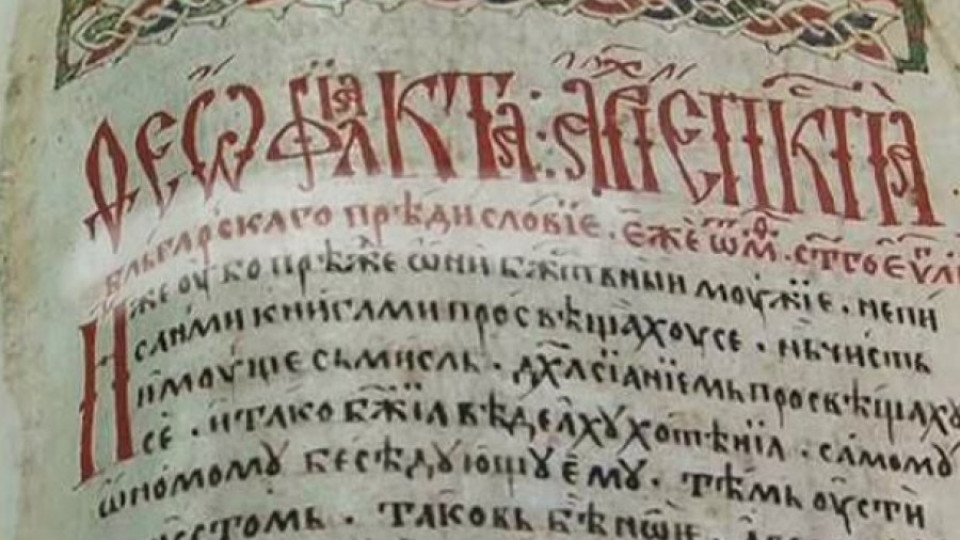 Ѳеѡфѵлакта : архїепⷭ҇кпїа
бльгарскаго прѣдисловїе . еже ѿ м . ст҃го еѵⷢ҇лї
Иже оубо прѣжⷣе ѡни бж҃тⷭ҇внїи моужїе . не пи
сaними книгами просвѣщахоусе . нь чисть
имоуще сьмисль . дх҃а сїанїемь просвѣщаху
се . и тако бж҃їа вѣдеахꙋ хотѣнїа . самомꙋ
ѡномомꙋ бесѣдꙋющꙋ емꙋ . тѣмь оусти
таковь бѣ